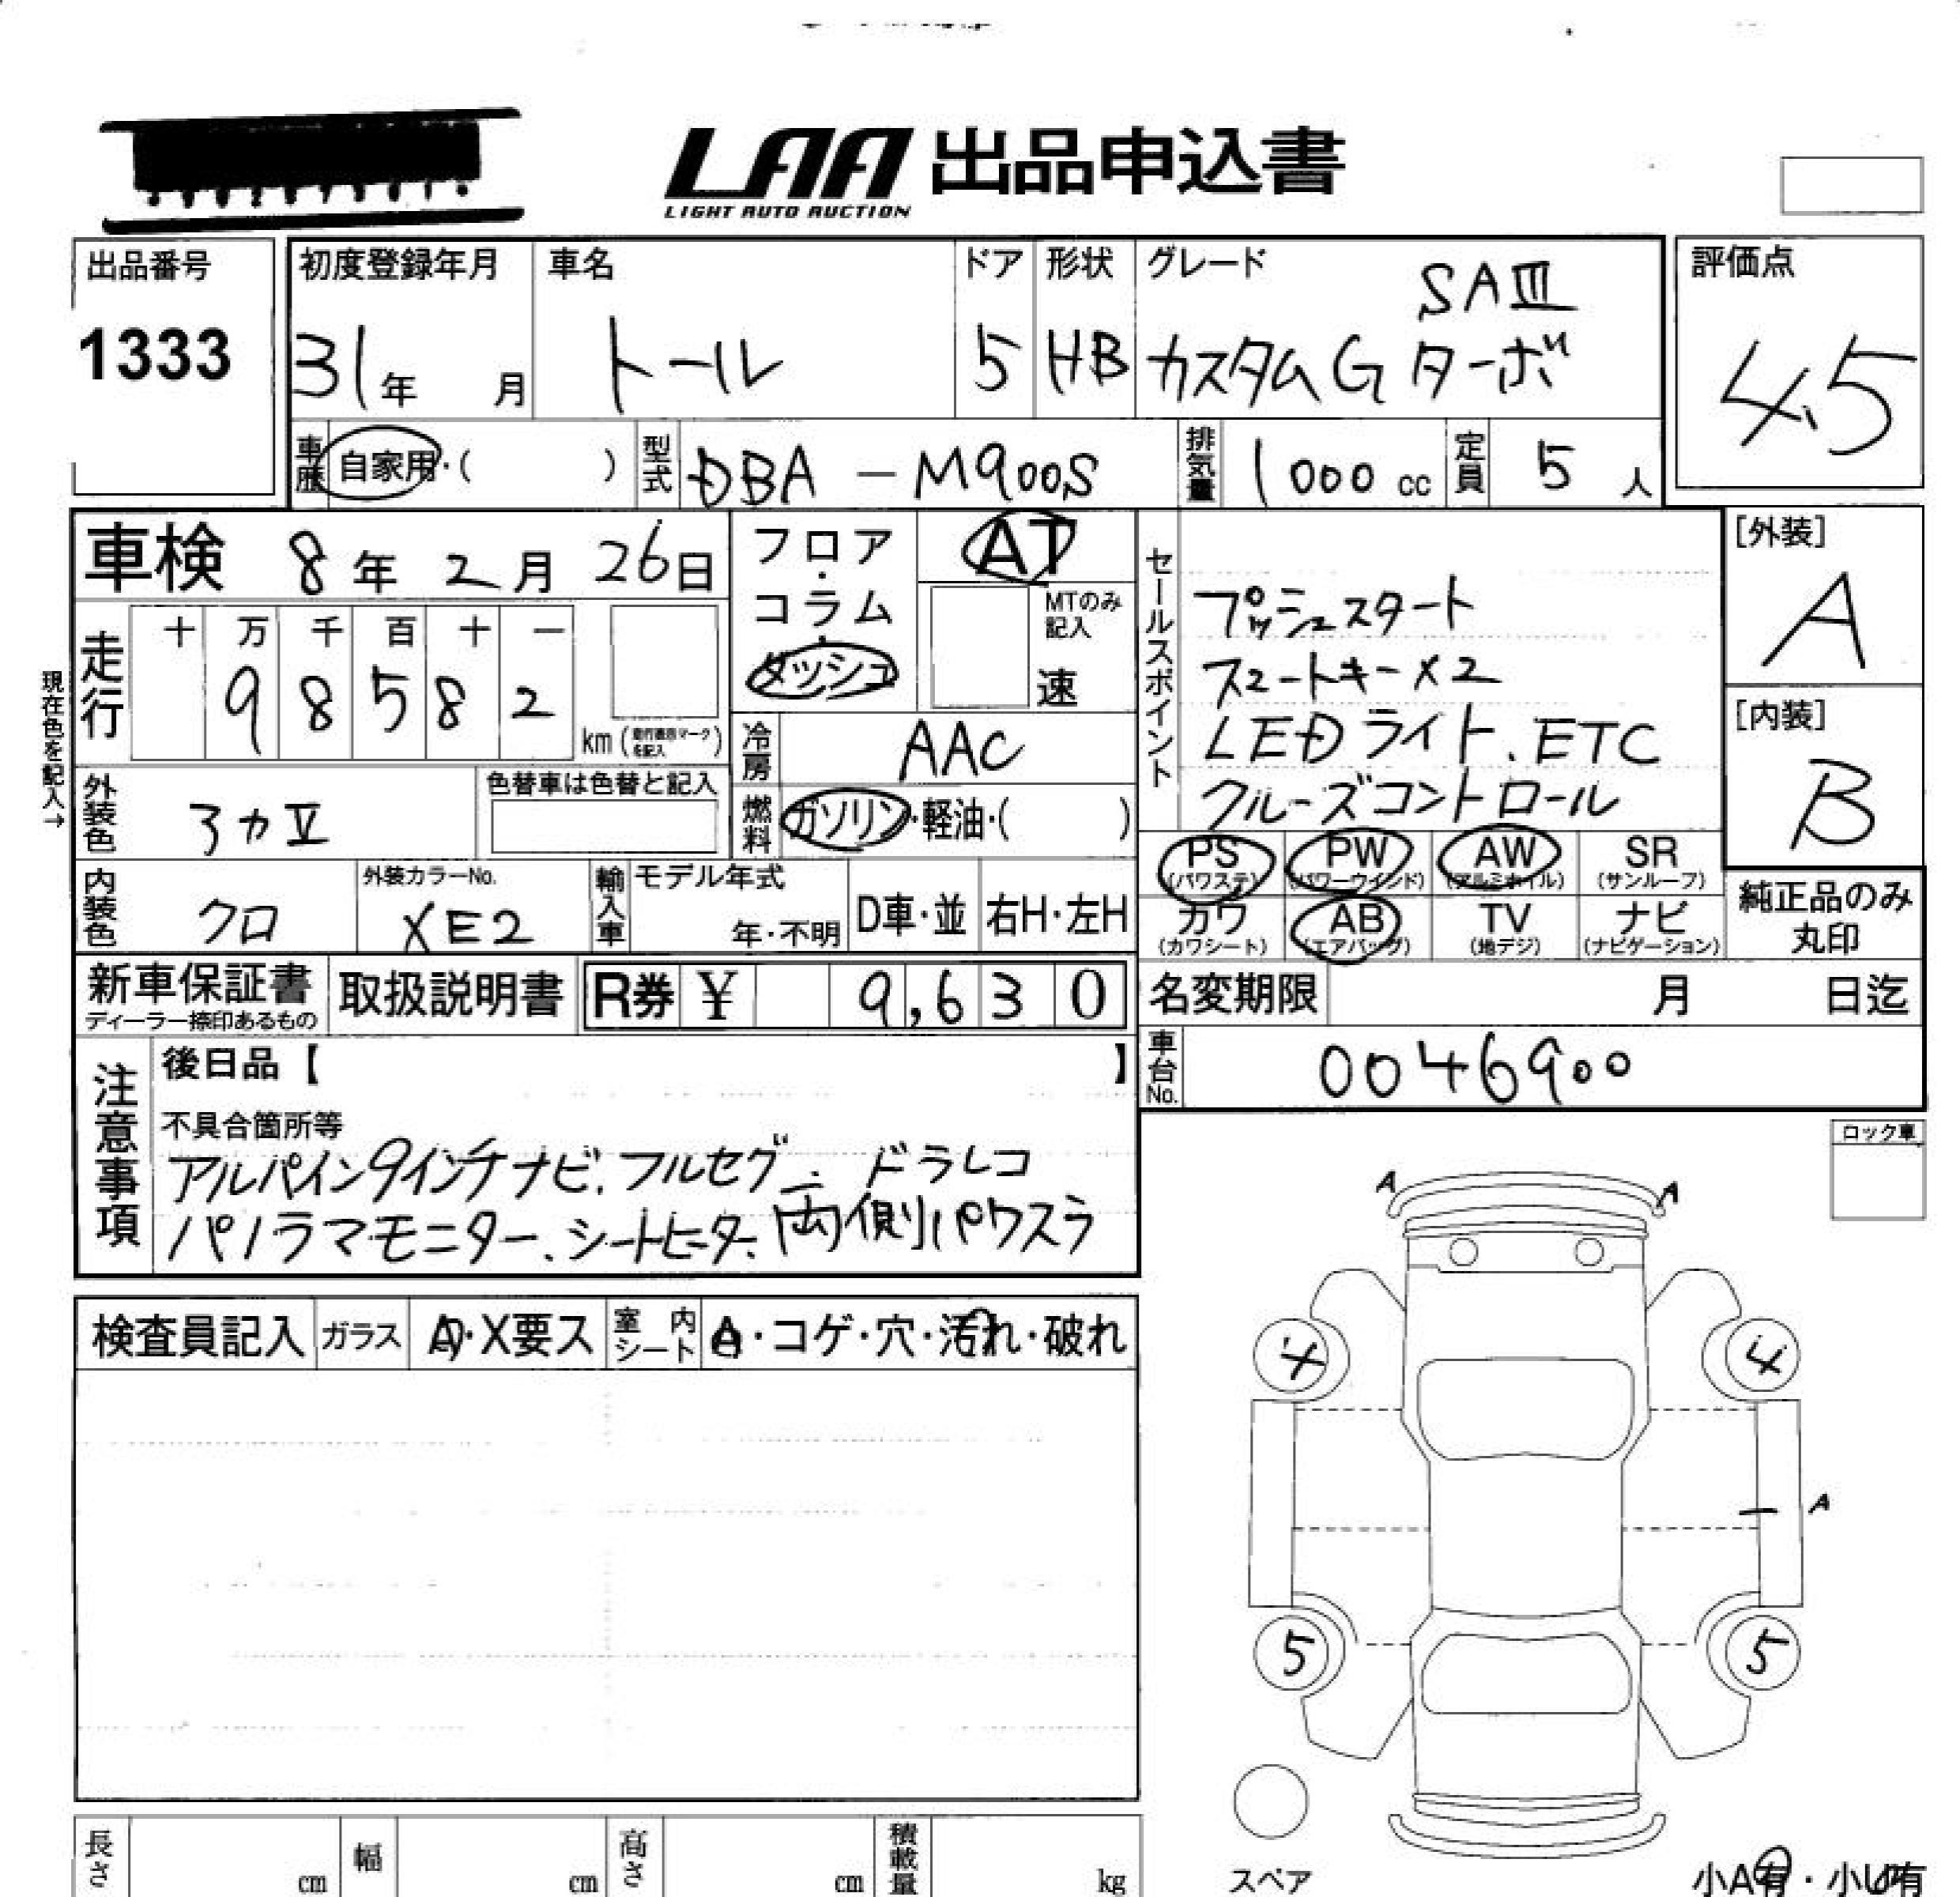 LAA 出品申込書
LIGHT AUTO AUCTION
出品番号
1333
初度登録年月
31年 月
車名
トール
ドア
5
形状
HB
グレード
SAⅢ
カスタムG ターボ
評価点
4.5
車歴 自家用・( )
型式 DBA - M900S
排気量 1000 cc
定員 5 人
車検 8年 2月 26日
現在色を記入→
走行
十 万 千 百 十 一
9 8 5 8 2
km
フロア・コラム
ダッシュ
AT
MTのみ記入
速
冷房 AAC
燃料 ガソリン・軽油・( )
セールスポイント
プッシュスタート
スマートキー×2
LEDライト、ETC
クルーズコントロール
[外装]
A
[内装]
B
外装色
色替車は色替と記入
内装色 クロ
外装カラーNo.
XE2
輸入車
モデル年式
年・不明
D車・並
右H・左H
PS (パワステ)
PW (パワーウインド)
AW (アルミホイル)
SR (サンルーフ)
カワ (カワシート)
AB (エアバッグ)
TV (地デジ)
ナビ (ナビゲーション)
純正品のみ
丸印
新車保証書
ディーラー捺印あるもの
取扱説明書
R券 ¥ 9,630
名変期限 月 日迄
車台No. 0046900
注意事項
後日品【 】
不具合箇所等
アルパイン9インチナビ、フルセグ、ドラレコ
パノラマモニター、シートヒーター、両側パワスラ
ロック車
検査員記入 ガラス A・X要ス 室内シート A・コゲ・穴・汚れ・破れ
A A
4 4
A
5 5
スペア
小A有・小U有
長さ cm
幅 cm
高さ cm
積載量 kg